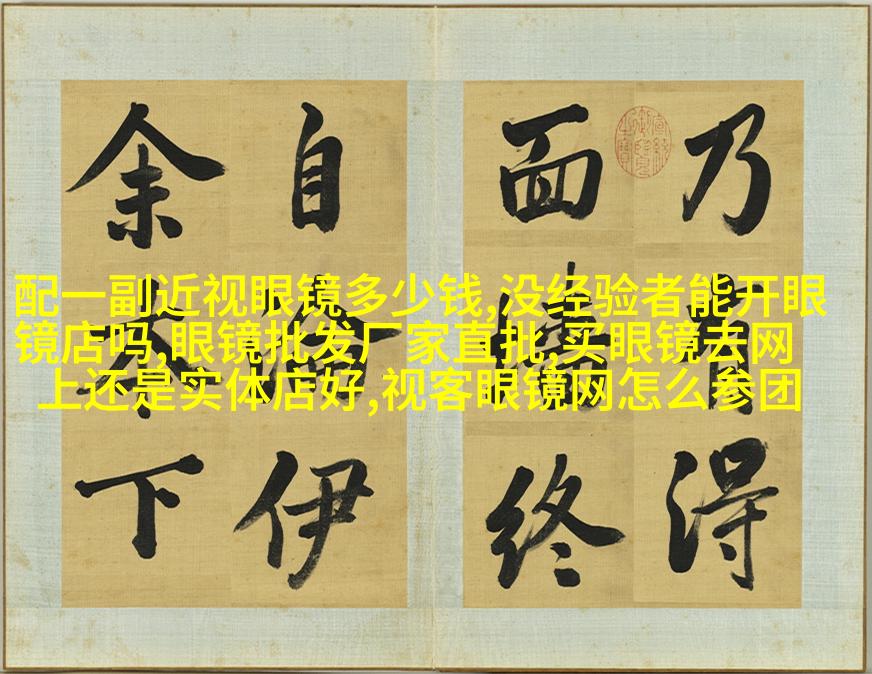 配一副近视眼镜多少钱,没经验者能开眼
镜店吗,眼镜批发厂家直批,买眼镜去网
上还是实体店好,视客眼镜网怎么参团
乃得
面终
自伊
余本下